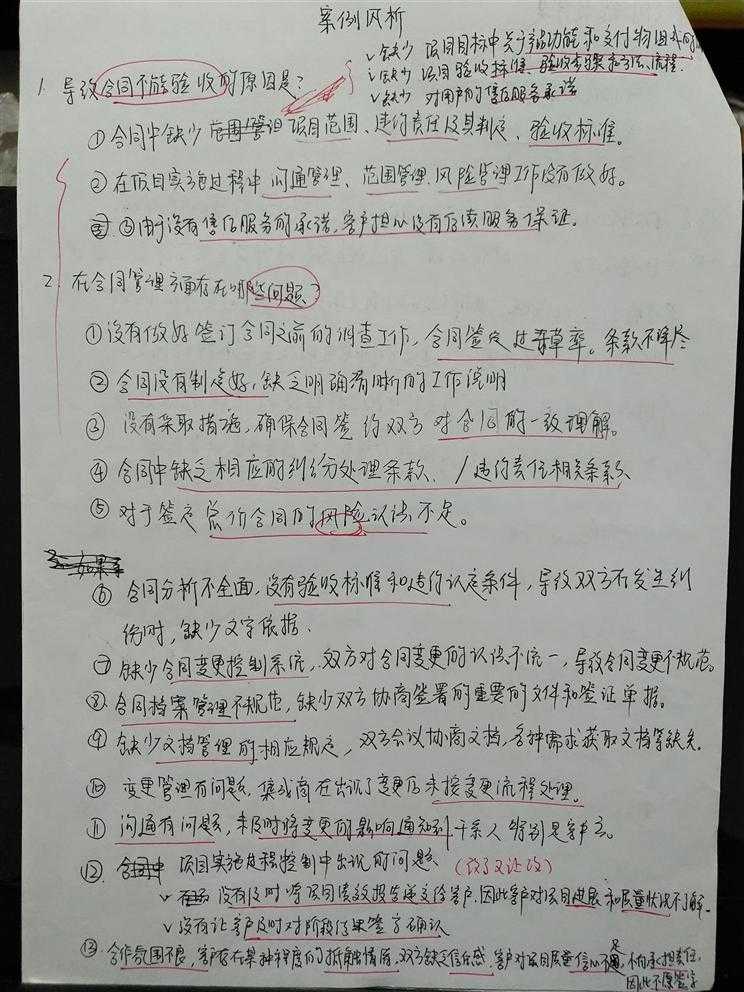 案例分析
✓缺少 项目目标中关于产品功能和交付物组成的
✓缺少 项目验收标准、验收步骤和方法、流程.
✓缺少 对用户的售后服务承诺
1. 导致合同不能验收的原因是?
①合同中缺少 项目范围、违约责任及其判定、验收标准。
②在项目实施过程中 沟通管理、范围管理、风险管理工作没有做好。
③由于没有售后服务的承诺,客户担心没有后续服务保证。
2. 在合同管理方面存在哪些问题?
①没有做好签订合同之前的调查工作,合同签定过于草率。条款不详尽
②合同没有制定好,缺乏明确清晰的工作说明
③没有采取措施,确保合同签约双方对合同的一致理解。
④合同中缺乏相应的纠纷处理条款、/违约责任相关条款
⑤对于签定总价合同的风险认识不足。
⑥合同分析不全面,没有验收标准和违约认定条件,导致双方在发生纠
纷时,缺少文字依据.
⑦缺少合同变更控制系统,双方对合同变更的认识不统一,导致合同变更不规范。
⑧合同档案管理不规范,缺少双方协商签署的重要的文件和签证单据。
⑨缺少文档管理的相应规定,双方会议协商文档,各种需求获取文档等缺失.
⑩变更管理有问题,集成商在出现了变更后未按变更流程处理。
⑪沟通有问题,未及时将变更的影响通知到干系人 特别是客户.
⑫项目实施过程控制中出现的问题 (改了又让改)
✓没有及时将项目绩效报告递交给客户.因此客户对项目进展和质量状况不了解.
✓没有让客户及时对阶段结果签字确认
⑬合作氛围不良,客户存在某种程度的抵触情绪,双方缺乏信任感.客户对项目质量信心不足,不肯承担责任,
因此不愿签字